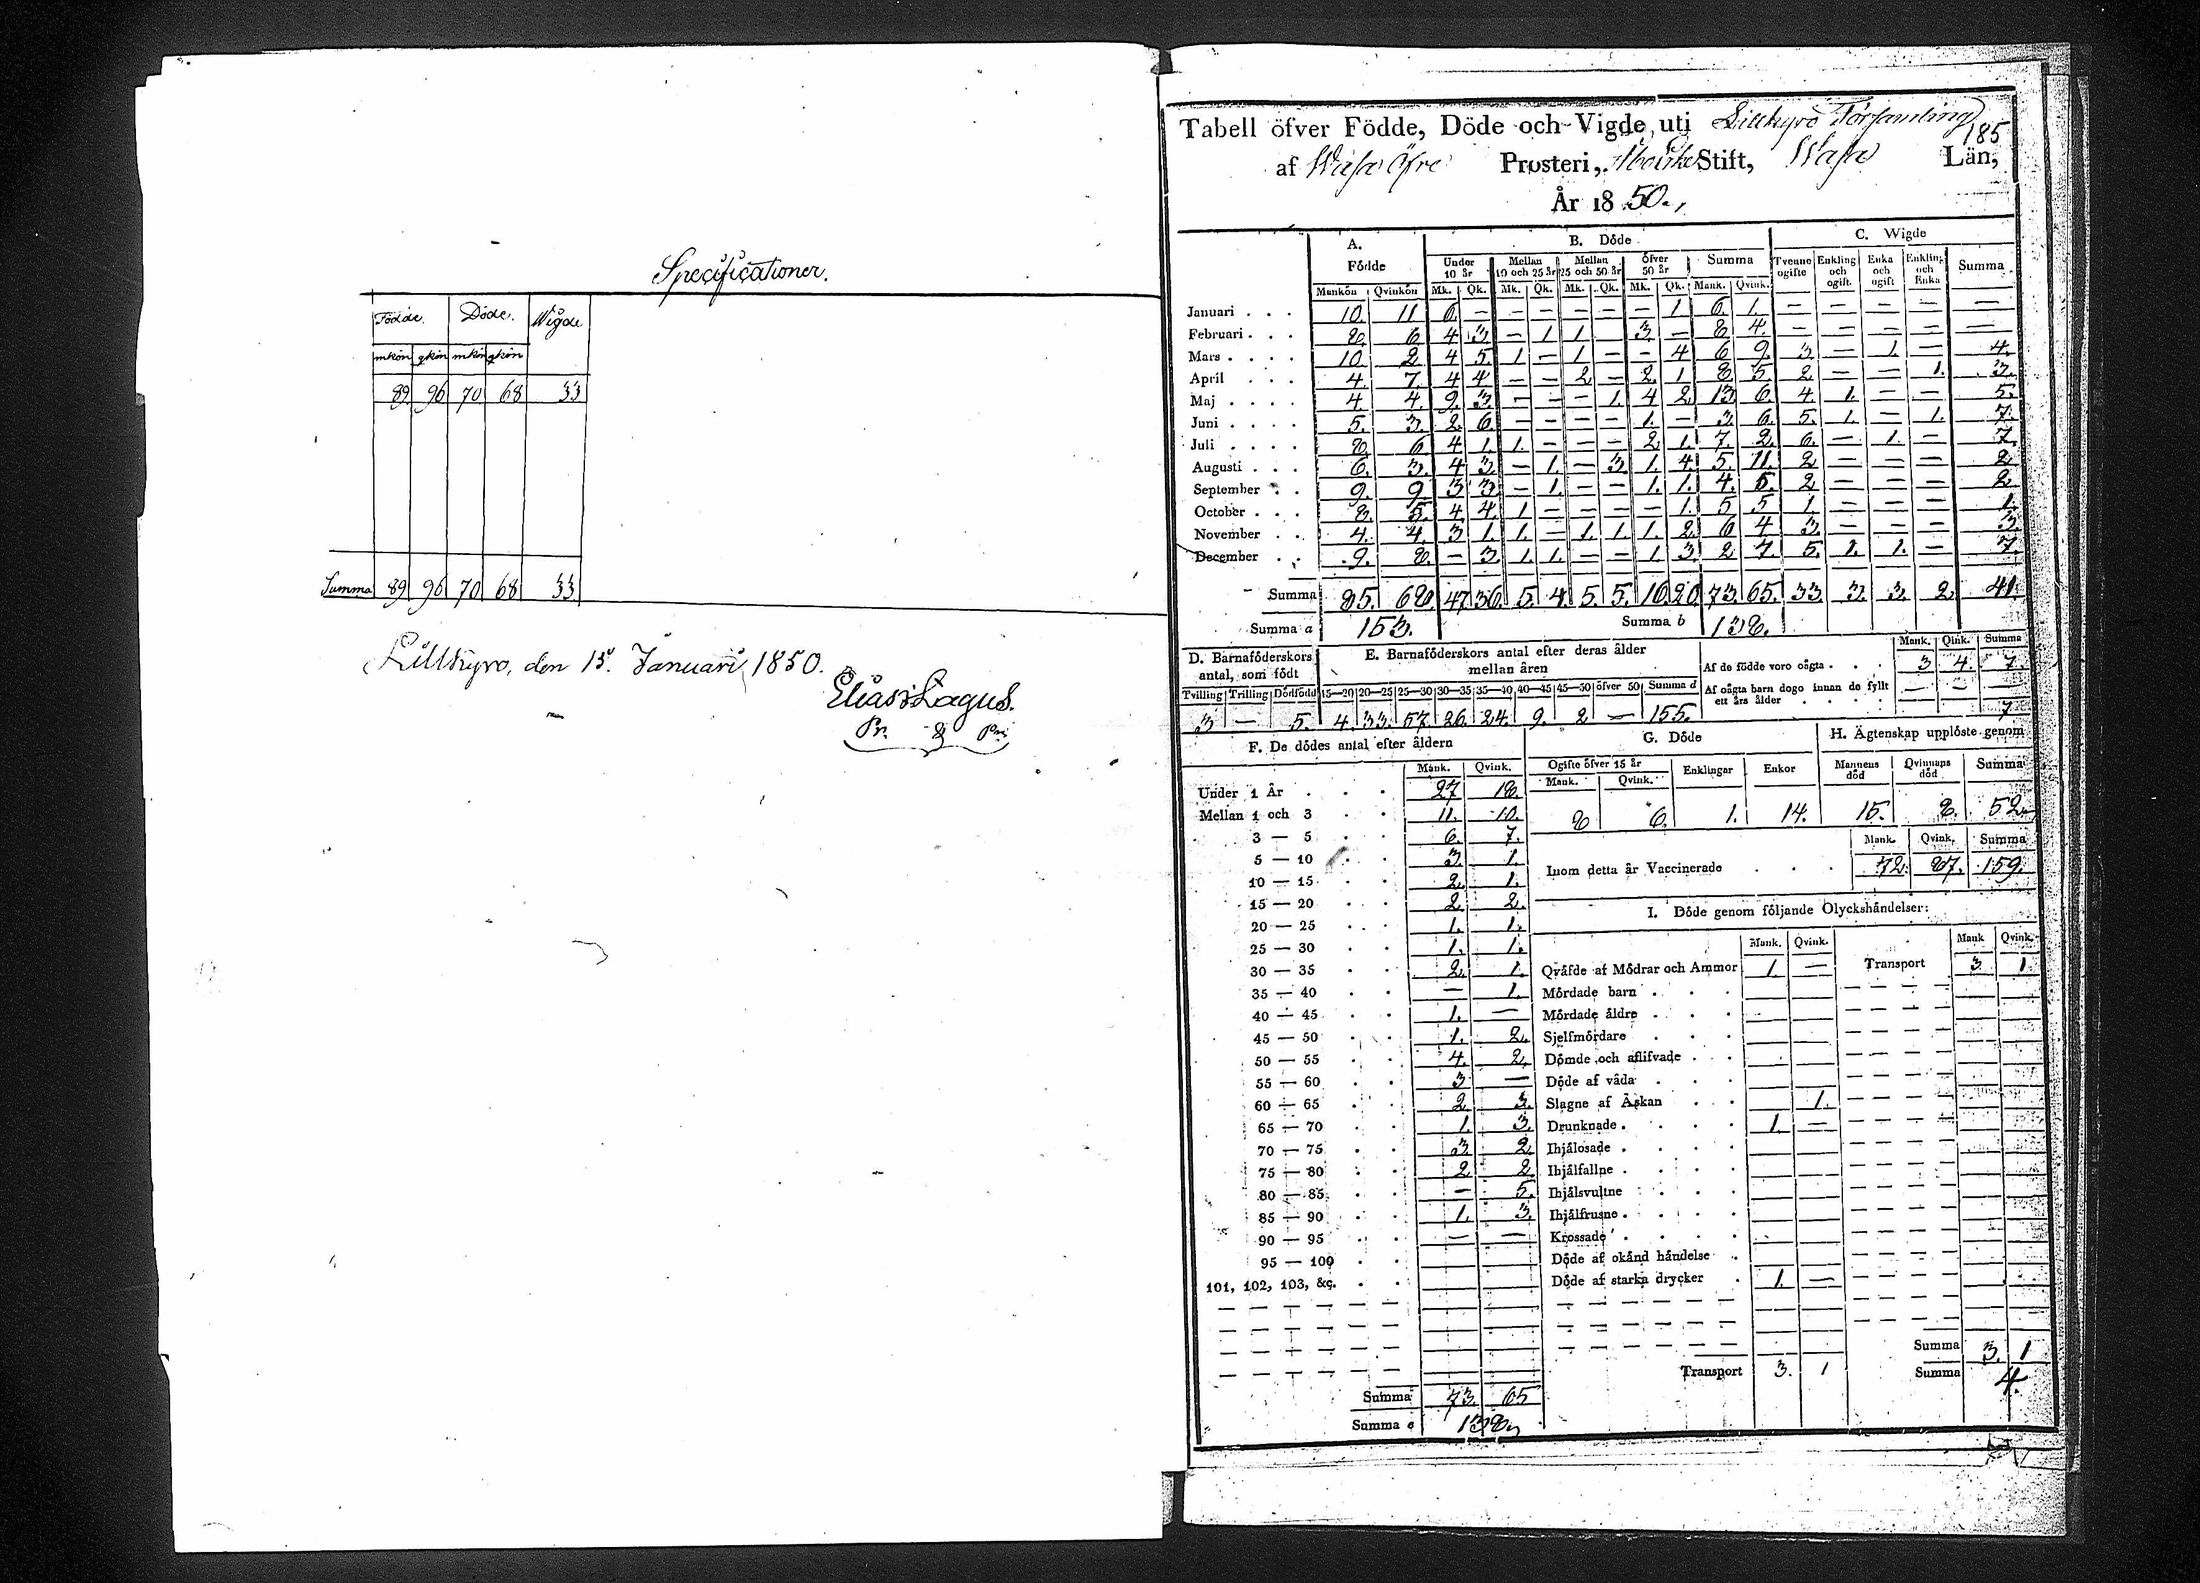 Specificationer.
Födde. Döde. Wigde
mkön qkön mkön qkön
89 96 70 68 33
Summa 89 96 70 68 33
Lillkyro, den 15. Januari 1850.
Elias Lagus.
Pr. & Pri
Tabell öfver Födde, Döde och Vigde uti Lillkyro Församling
185
af Wasa Öfre Prosteri, Stift, Wasa Län,
År 18 50.
A. B. Döde C. Wigde
Födde Under 10 år Mellan 10 och 25 år Mellan 25 och 50 år Öfver 50 år Summa Tvenne ogifte Enkling och ogift. Enka och ogift Enkling och Enka Summa
Mankön Qvinkön Mk. Qk. Mk. Qk. Mk. Qk. Mk. Qk. Mank. Qvink.
Januari . . . 10. 11 6. — — — — — — 1 6. 1. — — — — —
Februari . . . 8. 6 4 3 — 1 1 3. — 8 4. — — — — —
Mars . . . . 10. 2. 4 5. 1 — 1 — — 4 6 9. 3 — 1. — 4.
April . . . 4. 7. 4 4 — — 2 — 2. 1 8 5. 2 — — 1. 3.
Maj . . . . 4. 4. 9. 3. — — — 1. 4 2. 13 6. 4. 1. — — 5.
Juni . . . . 5. 3. 2 6. — — — — 1. — 3 6. 5. 1. — 1. 7.
Juli . . . . 8. 6 4 1. 1. — — — 2 1. 7. 2. 6. — 1. — 7.
Augusti . . . 6. 3. 4 3 — 1. — 3. 1. 4. 5. 11. 2 — — — 2
September . . 9. 9. 3 3 — 1. — — 1. 1. 4. 5. 2 — — — 2
October . . . 8. 5. 4. 4. 1 — — — — 1. 5 5 1. — — — 1.
November . . 4. 4. 3 1. 1. — 1. 1. 1. 2. 6 4 3. — — — 3.
December . . 9. 8. — 3. 1. 1. — — 1 3. 2 7 5. 1. 1. — 7.
Summa 85. 68. 47 36. 5. 4. 5. 5. 16. 20 73. 65. 33 3. 3. 2. 41.
Summa a 153. Summa b 138.
D. Barnaföderskors antal, som födt
E. Barnaföderskors antal efter deras ålder mellan åren
Mank. Qink. Summa
Af de födde voro oägta . . . 3 4. 7.
Af oägta barn dogo innan de fyllt ett års ålder . . . . — — —
7
Tvilling Trilling Dödfödd 15—20 20—25 25—30 30—35 35—40 40—45 45—50 öfver 50 Summa d
3 — 5. 4. 33. 57. 26. 24. 9. 2 — 155.
F. De dödes antal efter åldern
Mank. Qvink.
Under 1 År . . . 27 18.
Mellan 1 och 3 . . 11. 10.
3 — 5 . . 6. 7.
5 — 10 . . 3. 1.
10 — 15 . . 2. 1.
15 — 20 . . 2. 2.
20 — 25 . . 1. 1.
25 — 30 . . 1. 1.
30 — 35 . . 2. 1.
35 — 40 . . — 1.
40 — 45 . . 1. —
45 — 50 . . 1. 2.
50 — 55 . . 4. 2.
55 — 60 . . 3 —
60 — 65 . . 2 3.
65 — 70 . . 1. 3.
70 — 75 . . 3 2.
75 — 80 . . 2 2
80 — 85 . . — 5.
85 — 90 . . 1. 3.
90 — 95 . . — —
95 — 100 . .
101, 102, 103, &c. . .
Summa 73. 65
Summa e 138.
G. Döde
Ogifte öfver 15 år Enklingar Enkor
Mank. Qvink.
8 6. 1. 14.
H. Ägtenskap upplöste genom
Mannens död Qvinnans död Summa
15. 8. 52.
Mank. Qvink. Summa
Inom detta år Vaccinerade . . . 72. 87. 159.
I. Döde genom följande Olyckshändelser:
Mank. Qvink. Mank Qvink.
Qväfde af Mödrar och Ammor 1. — Transport 3. 1.
Mördade barn . . .
Mördade äldre . . .
Sjelfmördare . . .
Dömde och aflifvade . . .
Döde af våda . . .
Slagne af Åskan . . . 1.
Drunknade . . . . 1. —
Ihjälosade . . . .
Ihjälfallne . . . .
Ihjälsvultne . . .
Ihjälfrusne . . . .
Krossade . . . .
Döde af okänd händelse .
Döde af starka drycker . 1. —
Summa 3. 1
Transport 3. 1 Summa 4.